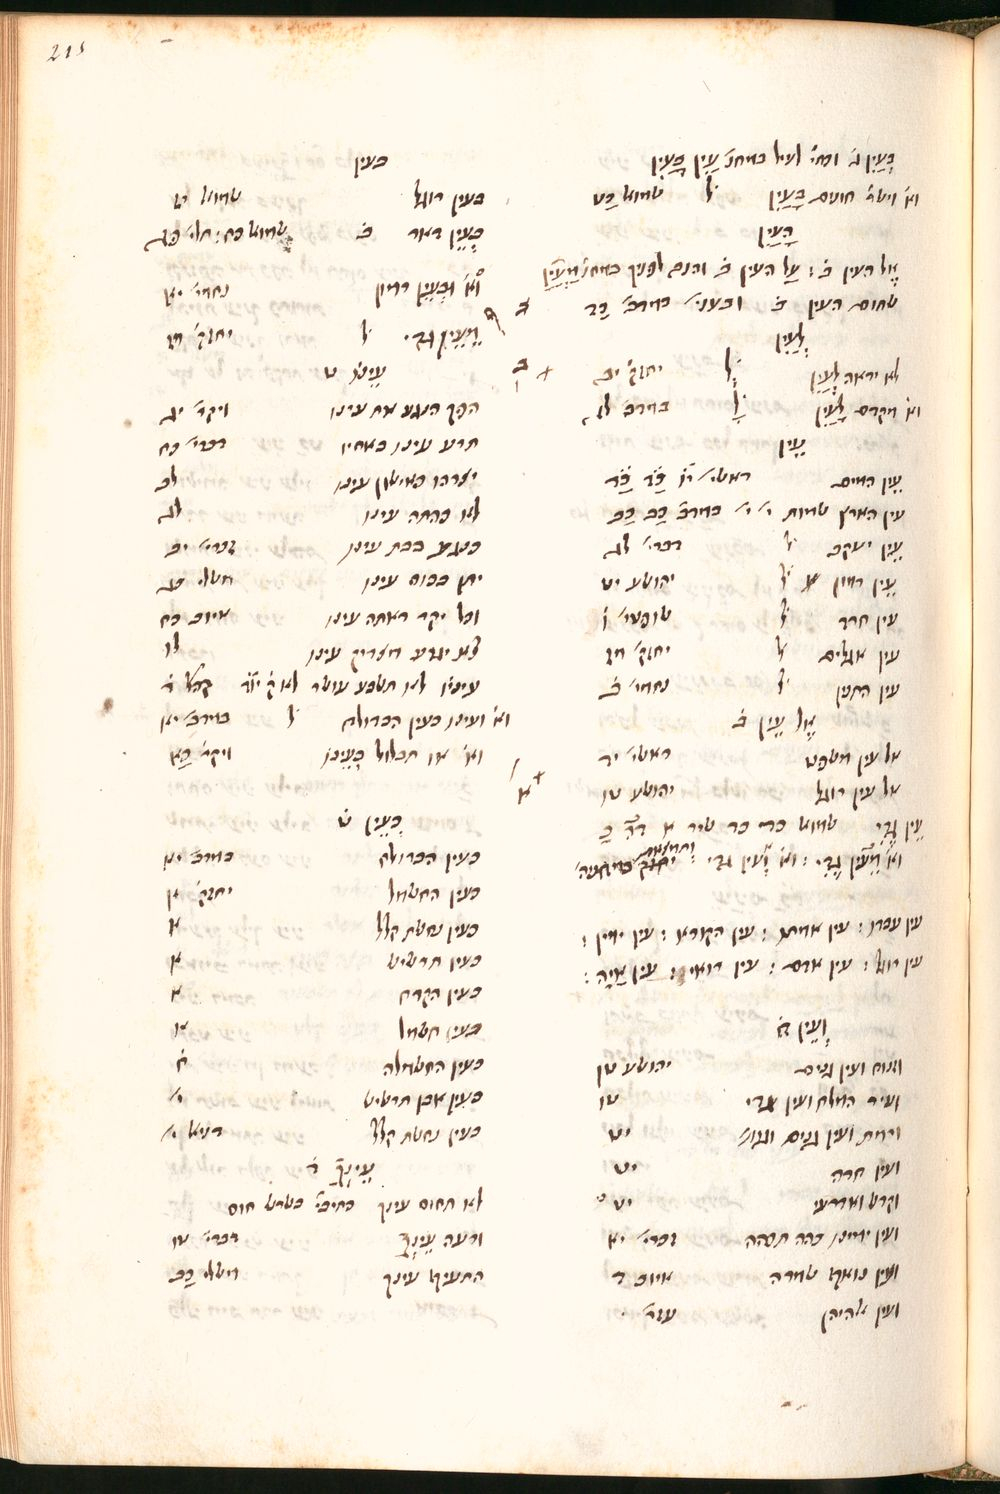 215
בְּעֵין ג̇ וכתי̇ לעיל במחנ̇ עַיִן בָּעַיִן
וא̇ וישר̇ חונים בָּעַיִן ל̇ שמוא̇ כט
הָעַיִן
אֶל העין ב̇ : עַל העין ב̇
שחום העין ב̇ ובעני̇ במדב̇ כד
לָעַיִן
לא יראה לָעַיִן ל̇ יחזק̇ יב
וא̇ מקדם לָעַיִן ל̇ במדב̇ לד
עֵין
עֵין המים ראשי̇
עין הארץ שמות י̇ י̇ במדב̇ כב כב
עֵין יעקב ל̇ דברי̇ לג
עֵין רמון ל̇ יהושע יט
עין חרד ל̇ שופטי̇ ז
עין עגלים ל̇ יחזק̇ מז
עין התנין ל̇ נחמי̇ ב̇
אֶל עֵין ב̇
אל עין משפט ראשי̇ יד
אל עין רוגל יהושע טו
עֵין גֶדִי שמוא̇ כד כד שיר א
עין עברן : עין אמית : עין הקורא : עין ימין :
עין רוגל : עין אדם : עין רואי : עין אַיָה :
וְעֵין ח̇
וגנות ועין גנים יהושע טו
ועיר המלח ועין גדי טו
ורמת ועין גנים וגנו̇ יט
ועין חדה יט
וקדש ואדרעי יט
ועין ימינו כהה תכהה זכרי̇ יא
ועין נואף שמרה איוב ד
ועין אלהיהן עזר̇
בעין
בעין רוגל שמוא̇
בְעֵין דאר ב̇ שמוא̇ כח : תלי̇ פג
וא̇ וּבְעֵין רמון נחמי̇ יא
מֵעֵין גדי ל̇ יחזק̇ מז
עֵינוֹ ט
הפך הנגע את עינו ויקר̇ יג
תרע עינו באחיו דברי̇ כח
יצרנו כאישון עינו לב
לא כהתה עינו לד
כנגע בבת עינו זכרי̇ יב
יתן בכוס עינו משלי̇ כג
וכל יקר ראתה עינו איוב כח
לא יגרע מצדיק עינו לו
עיניו לא תשבע עושר קהל̇ ד̇
וא̇ ועינו כעין הבדולח ל̇ במדב̇ יא
וא̇ או תבלול בְּעֵינוֹ ויקר̇ כא
כְּעֵין ט̇
כעין הבדולח במדב̇ יא
כעין החשמל יחזק̇ א
כעין נחשת קלל א
כעין תרשיש א
כעין הקרח א
כעין חשמל א
כעין החשמלה ח̇
כעין אבן תרשיש י̇
כעין נחשת קלל דניא̇ י̇
עֵינְךָ ד̇
לא תחוס עינך כתיבי̇ בשרש חוס
ורעה עֵינְךָ דברי̇ טו
התעיף עינך משלי̇ כג